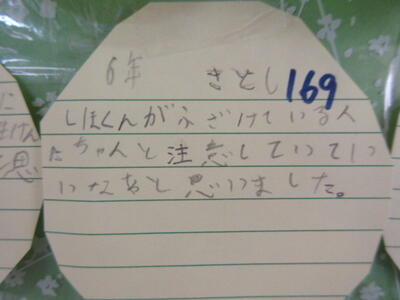 6年 さとし 169
しほくんがふざけている人
にちゃんと注意していてい
いなあと思いました。
に
けん
思